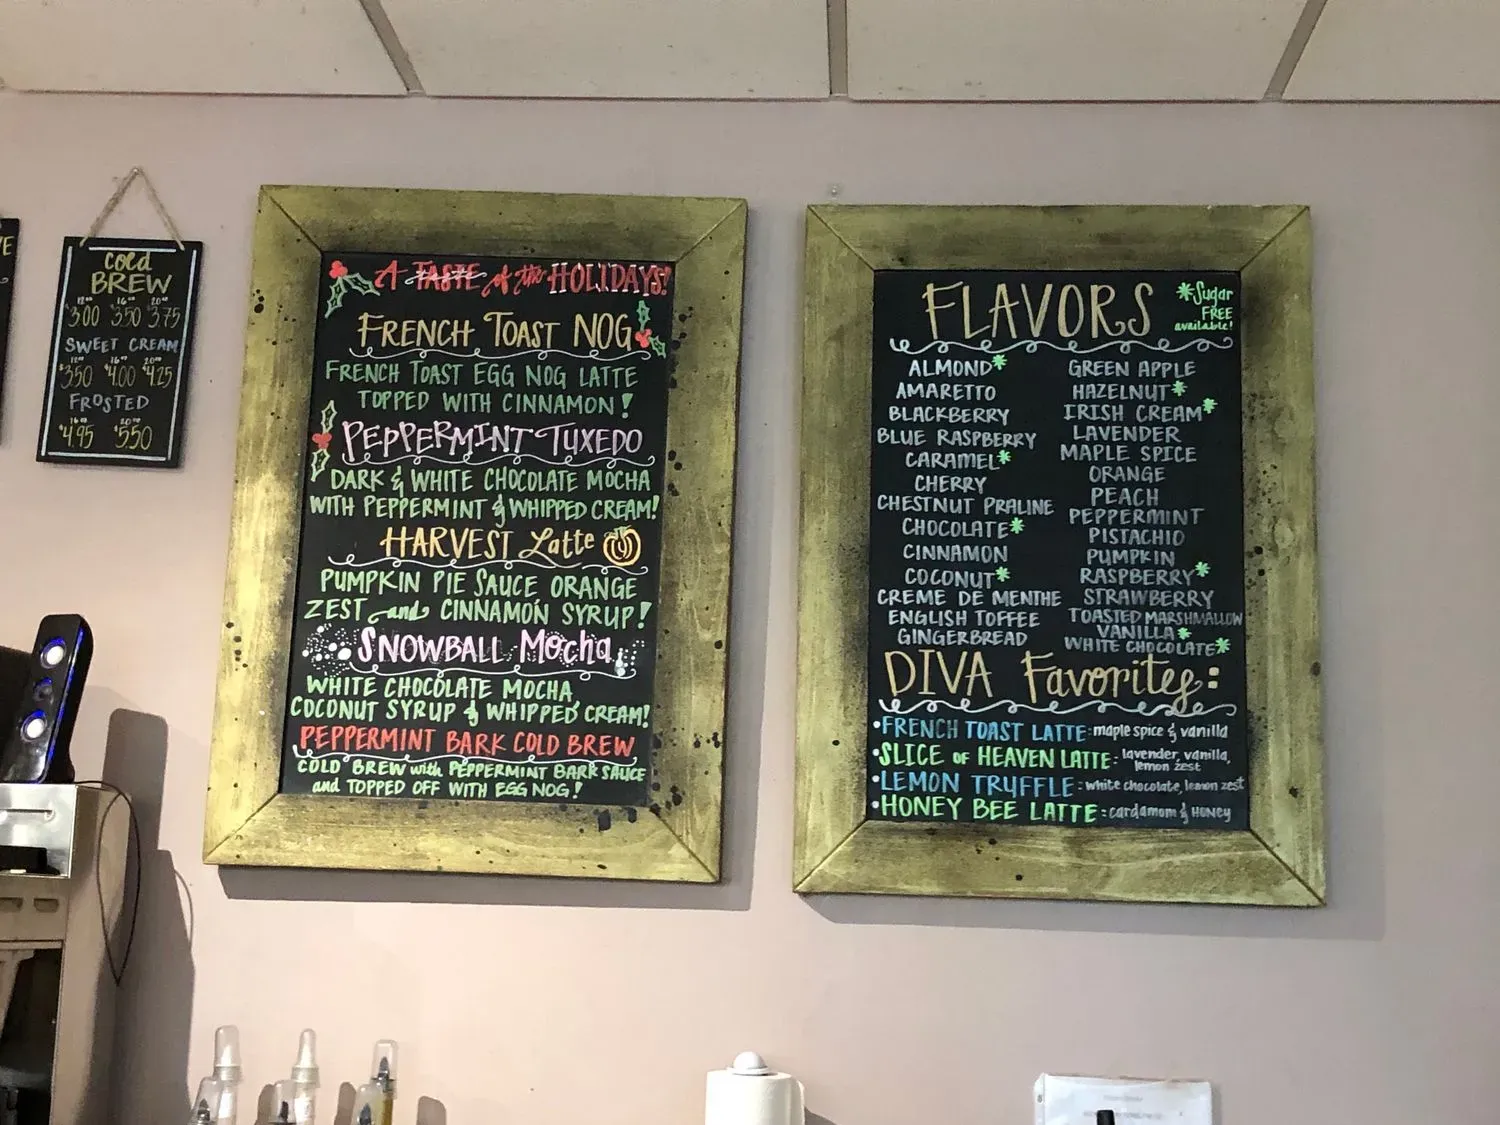 Cold
BREW
12oz 16oz 20oz
$3.00 $3.50 $3.75
SWEET CREAM
12oz 16oz 20oz
$3.50 $4.00 $4.25
FROSTED
16oz 20oz
$4.95 $5.50
A TASTE of the HOLIDAYS!
FRENCH TOAST NOG
FRENCH TOAST EGG NOG LATTE
TOPPED WITH CINNAMON!
PEPPERMINT TUXEDO
DARK & WHITE CHOCOLATE MOCHA
WITH PEPPERMINT & WHIPPED CREAM!
HARVEST Latte
PUMPKIN PIE SAUCE ORANGE
ZEST and CINNAMON SYRUP!
SNOWBALL Mocha
WHITE CHOCOLATE MOCHA,
COCONUT SYRUP & WHIPPED CREAM!
PEPPERMINT BARK COLD BREW
COLD BREW with PEPPERMINT BARK SAUCE
and TOPPED OFF WITH EGG NOG!
FLAVORS
*Sugar
FREE
available!
ALMOND*
AMARETTO
BLACKBERRY
BLUE RASPBERRY
CARAMEL*
CHERRY
CHESTNUT PRALINE
CHOCOLATE*
CINNAMON
COCONUT*
CREME DE MENTHE
ENGLISH TOFFEE
GINGERBREAD
GREEN APPLE
HAZELNUT*
IRISH CREAM*
LAVENDER
MAPLE SPICE
ORANGE
PEACH
PEPPERMINT
PISTACHIO
PUMPKIN
RASPBERRY*
STRAWBERRY
TOASTED MARSHMALLOW
VANILLA*
WHITE CHOCOLATE*
DIVA Favorites:
•FRENCH TOAST LATTE: maple spice & vanilla
•SLICE OF HEAVEN LATTE: lavender, vanilla,
lemon zest
•LEMON TRUFFLE: white chocolate, lemon zest
•HONEY BEE LATTE: cardamom & HONEY